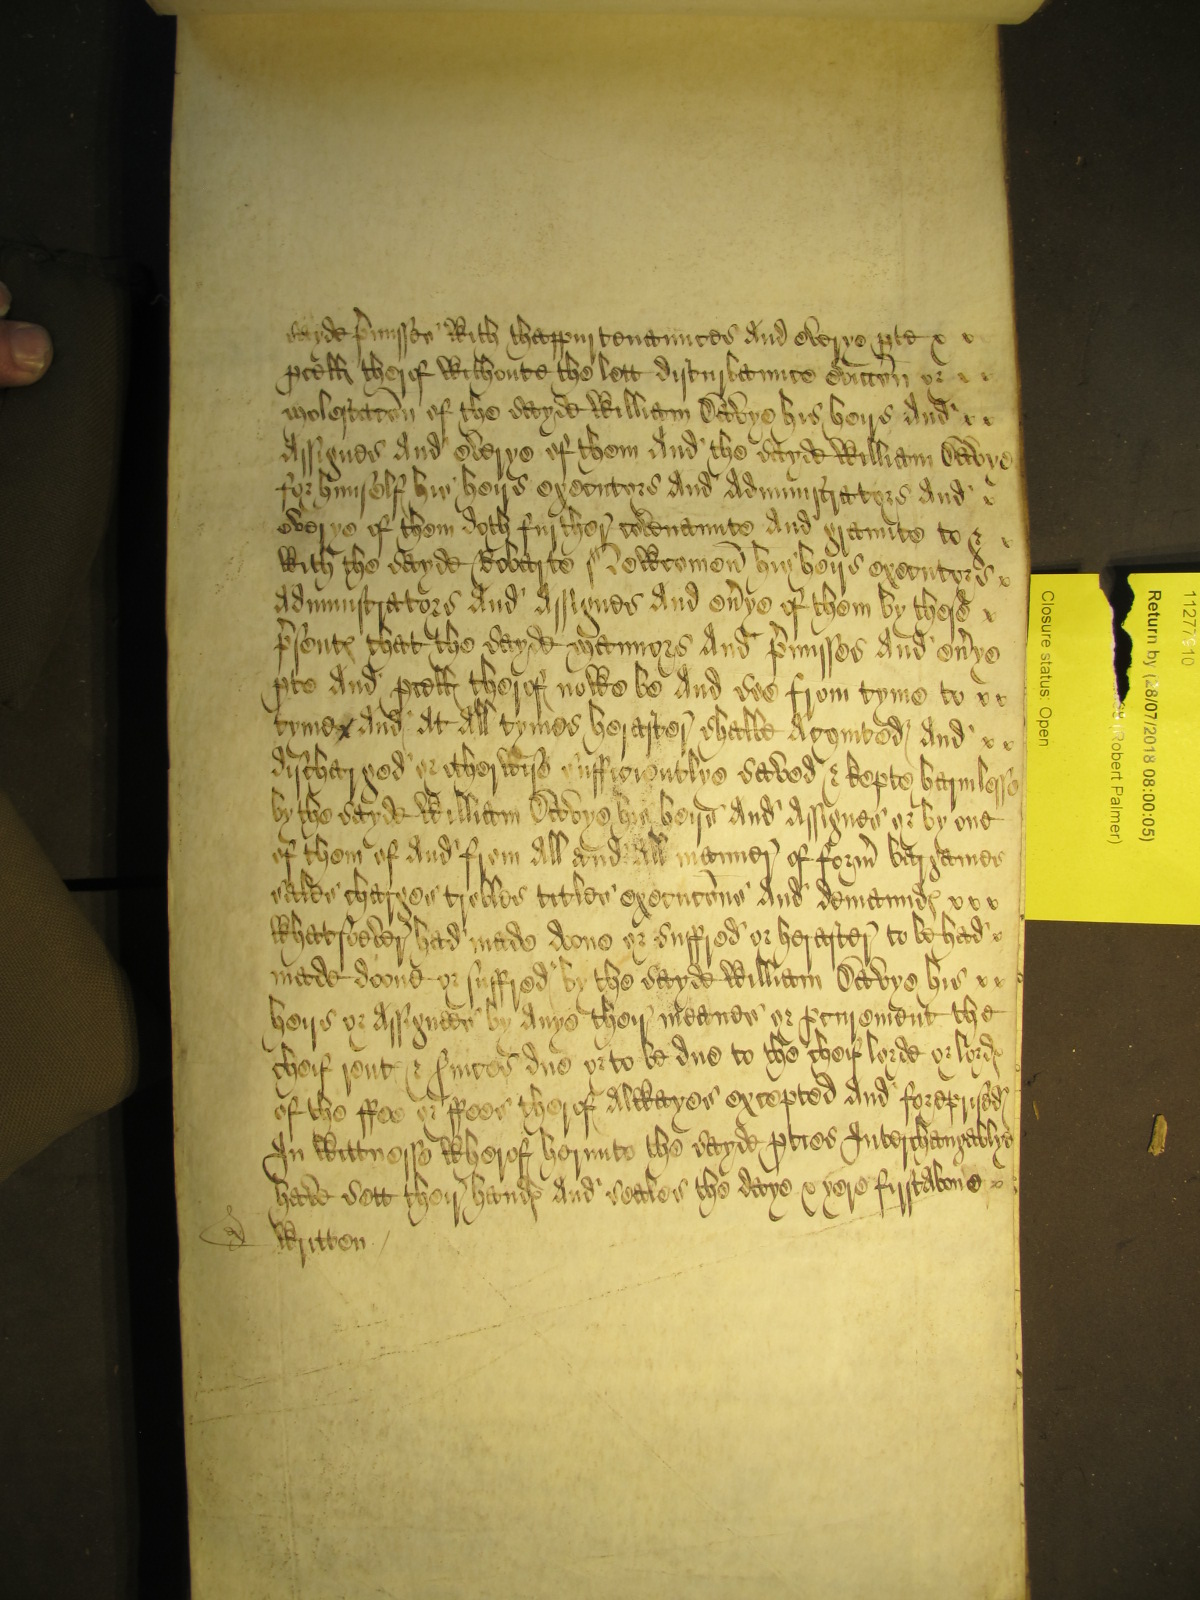 sayde p̃misses with thappurtenaunces And everye pte x x
pcell therof withoute the lett disturbaunce eviccōn or x x
molestacōn of the sayde William Savye his heirs And x x
Assignes And everye of them And the sayde William Savye
for himself his heirs executors And Administrators And x
everye of them doth further covenaunte And graunte to &
with the sayde Roberte Newcomen his heirs executors x
Administrators And Assignes And eṽye of them by these x
p̃sents that the sayde mannors And p̃misses And eṽye
pte And pcell therof nowe be And soe from tyme to x x
tyme x And At All tymes herafter shalbe Acquited And x x
discharged or otherwise sufficientlye saved & kepte harmlesse
by the sayde William Savye his heirs And Assignes or by one
of them of And from All And All manner of form̃ bargaines
sales charges trobles titles execucōns And demaunds x x x
whatsoever had made done or suffred or herafter to be had x
made doone or suffred by the sayde William Savye his x x
heirs or Assignes by Anye their meanes or pcurement the
cheif rents & s̃vices due or to be due to the cheif lorde or lords
of the ffee or ffees therof Alwayes excepted And foreprised
In wittnesse wherof herunto the sayde pties Interchangablye
have sett their hands And seales the daye x yere first above x
written
11277910
Return by (28/07/2018 08:00:05)
Robert Palmer)
Closure status: Open